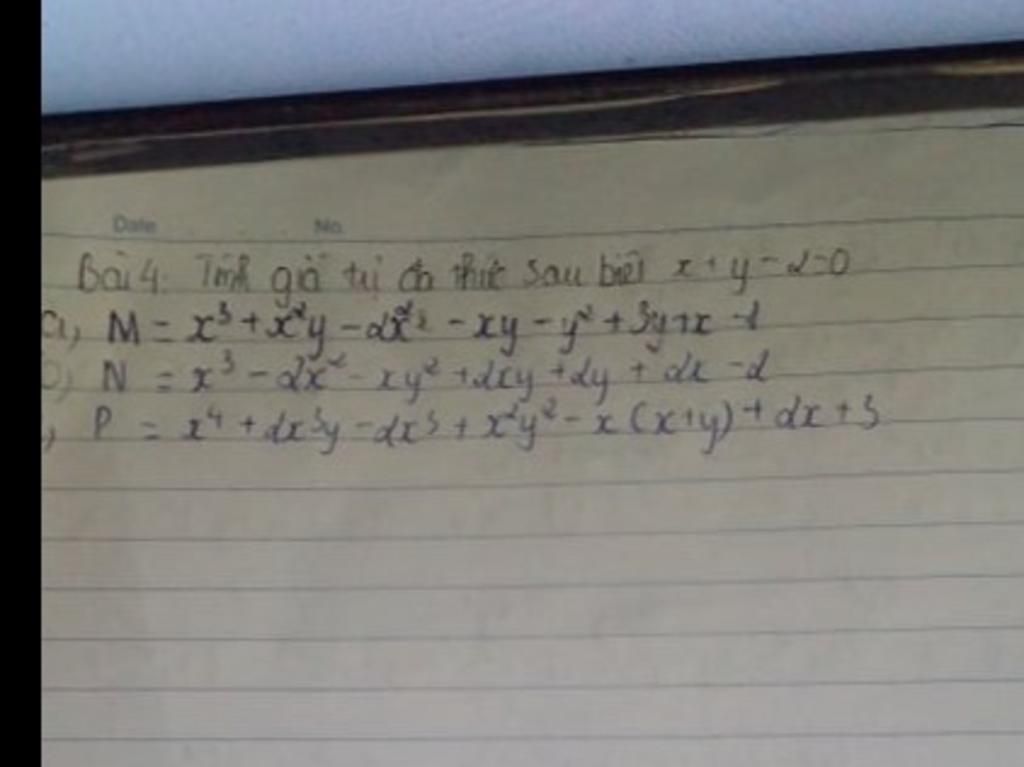 Date No.
Bài 4. Tính giá trị đa thức sau biết x + y - 2 = 0
a, M = x³ + x²y - 2x² - xy - y² + 3y + x - 1
), N = x³ - 2x² - xy² + 2xy + 2y + 2x - 2
), P = x⁴ + 2x³y - 2x³ + x²y² - x(x+y) + 2x + 3